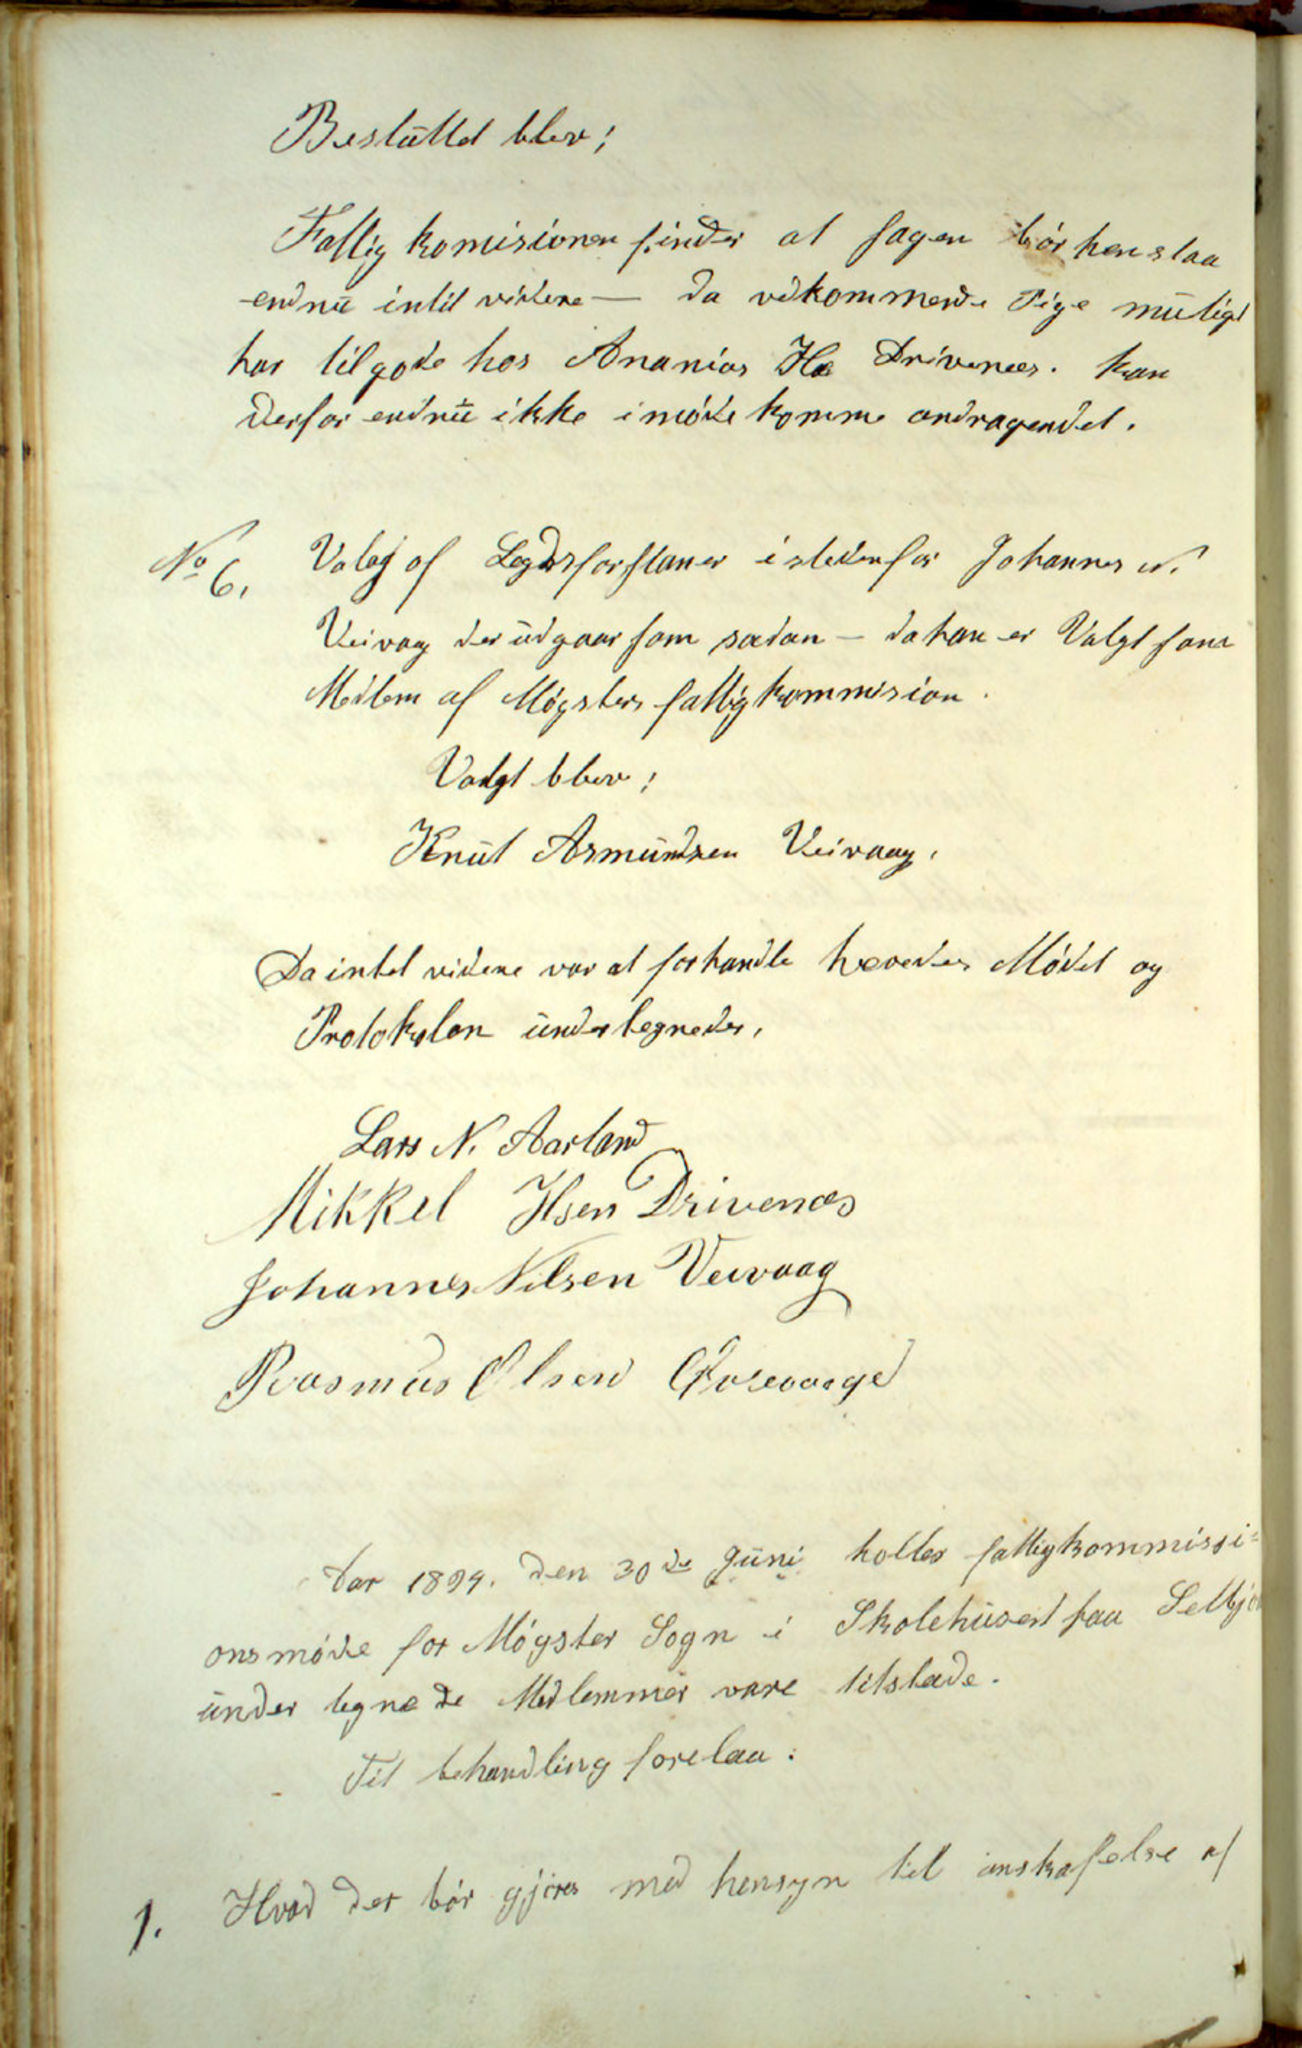 Besluttet blev;
Fattigkomisionen finder at sagen bør henstaa
endnu intil videre — da vedkommende Pige muligt
har tilgode hos Ananias Hs Drivenes. kan
derfor endnu ikke imødekomme andragendet.
No 6. Valg af Legdsforstaner istedenfor Johannes N.
Veivaag der udgaar som sadan — da han er Valgt som
Medlem af Møgsters fattigkommision.
Valgt blev;
Knut Asmundsen Veivaag.
Da intet videre var at forhandle hævedes Mødet og
Protokolen undertegnedes.
Lars N. Aarland
Mikkel Hsen Drivenes
Johannes Nilsen Veivaag
Rasmus Olsen
Aar 1894. den 30de Juni holtes fattigkommissi=
onsmøde for Møgster Sogn i Skolehuset paa Selbjør
under tegnede Medlemmer vare tilstæde.
Til behandling forelaa:
1. Hvad der bør gjøres med hensyn til anskafelse af